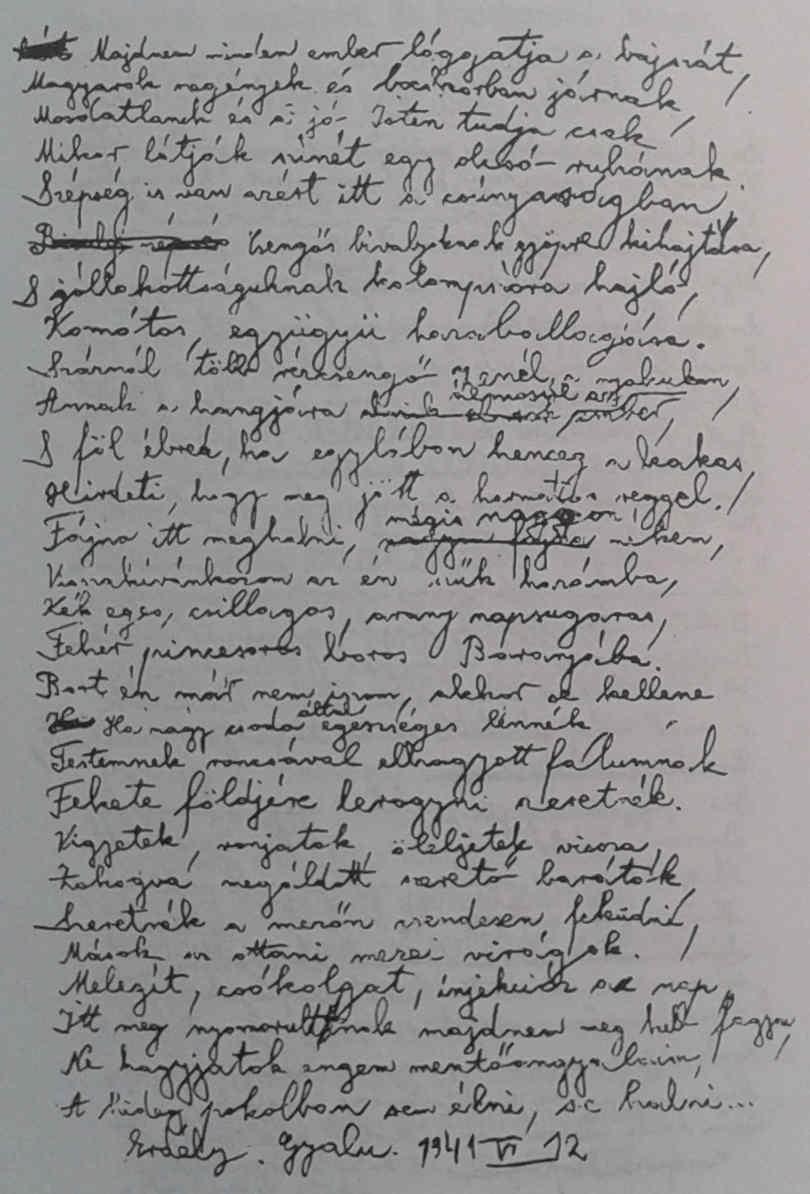 Majdnem minden ember lóggatja a bajszát,
Magyarok szegények és bocskorban járnak
Mosdatlanok és a jó Isten tudja csak
Mikor látják színét egy olcsó ruhának.
Szépség is van azért itt a csúnyaságban,
Csengős bivalyoknak gyöpre kihajtása,
S jóllakottságuknak kolompszóra hajló,
Komótos, együgyü hazaballagása.
Száznál több rézcsengő zenél a nyakukban,
Annak a hangjára
S föl ébred, ha egylábon henceg a kakas,
Hirdeti, hogy meg jött a harmatos reggel.
Fájna itt meghalni, mégis nagyon nékem,
Visszakívánkozom az én hazámba,
Kék eges, csillagos, arany napsugaras,
Fehér pincesoros boros Baranyába.
Bort én már nem iszom, akkor se kellene
Ha nagy csoda által egészséges lennék
Testemnek roncsával elhagyott falumnak
Fekete földjére lerogyni szeretnék.
Vigyetek, vonjatok, öleljetek vissza,
Zokogva megáldott szerető barátok,
Szeretnék a mezőn csendesen feküdni,
Mások az ottani mezei virágok.
Melegít, csókolgat, injekcióz a nap,
Itt meg nyomorultnak majdnem meg kell fagyni,
Ne hagyjatok engem mentőangyalaim,
A hideg pokolban sem élni, se halni...
Erdély. Gyalu. 1941 VI 12